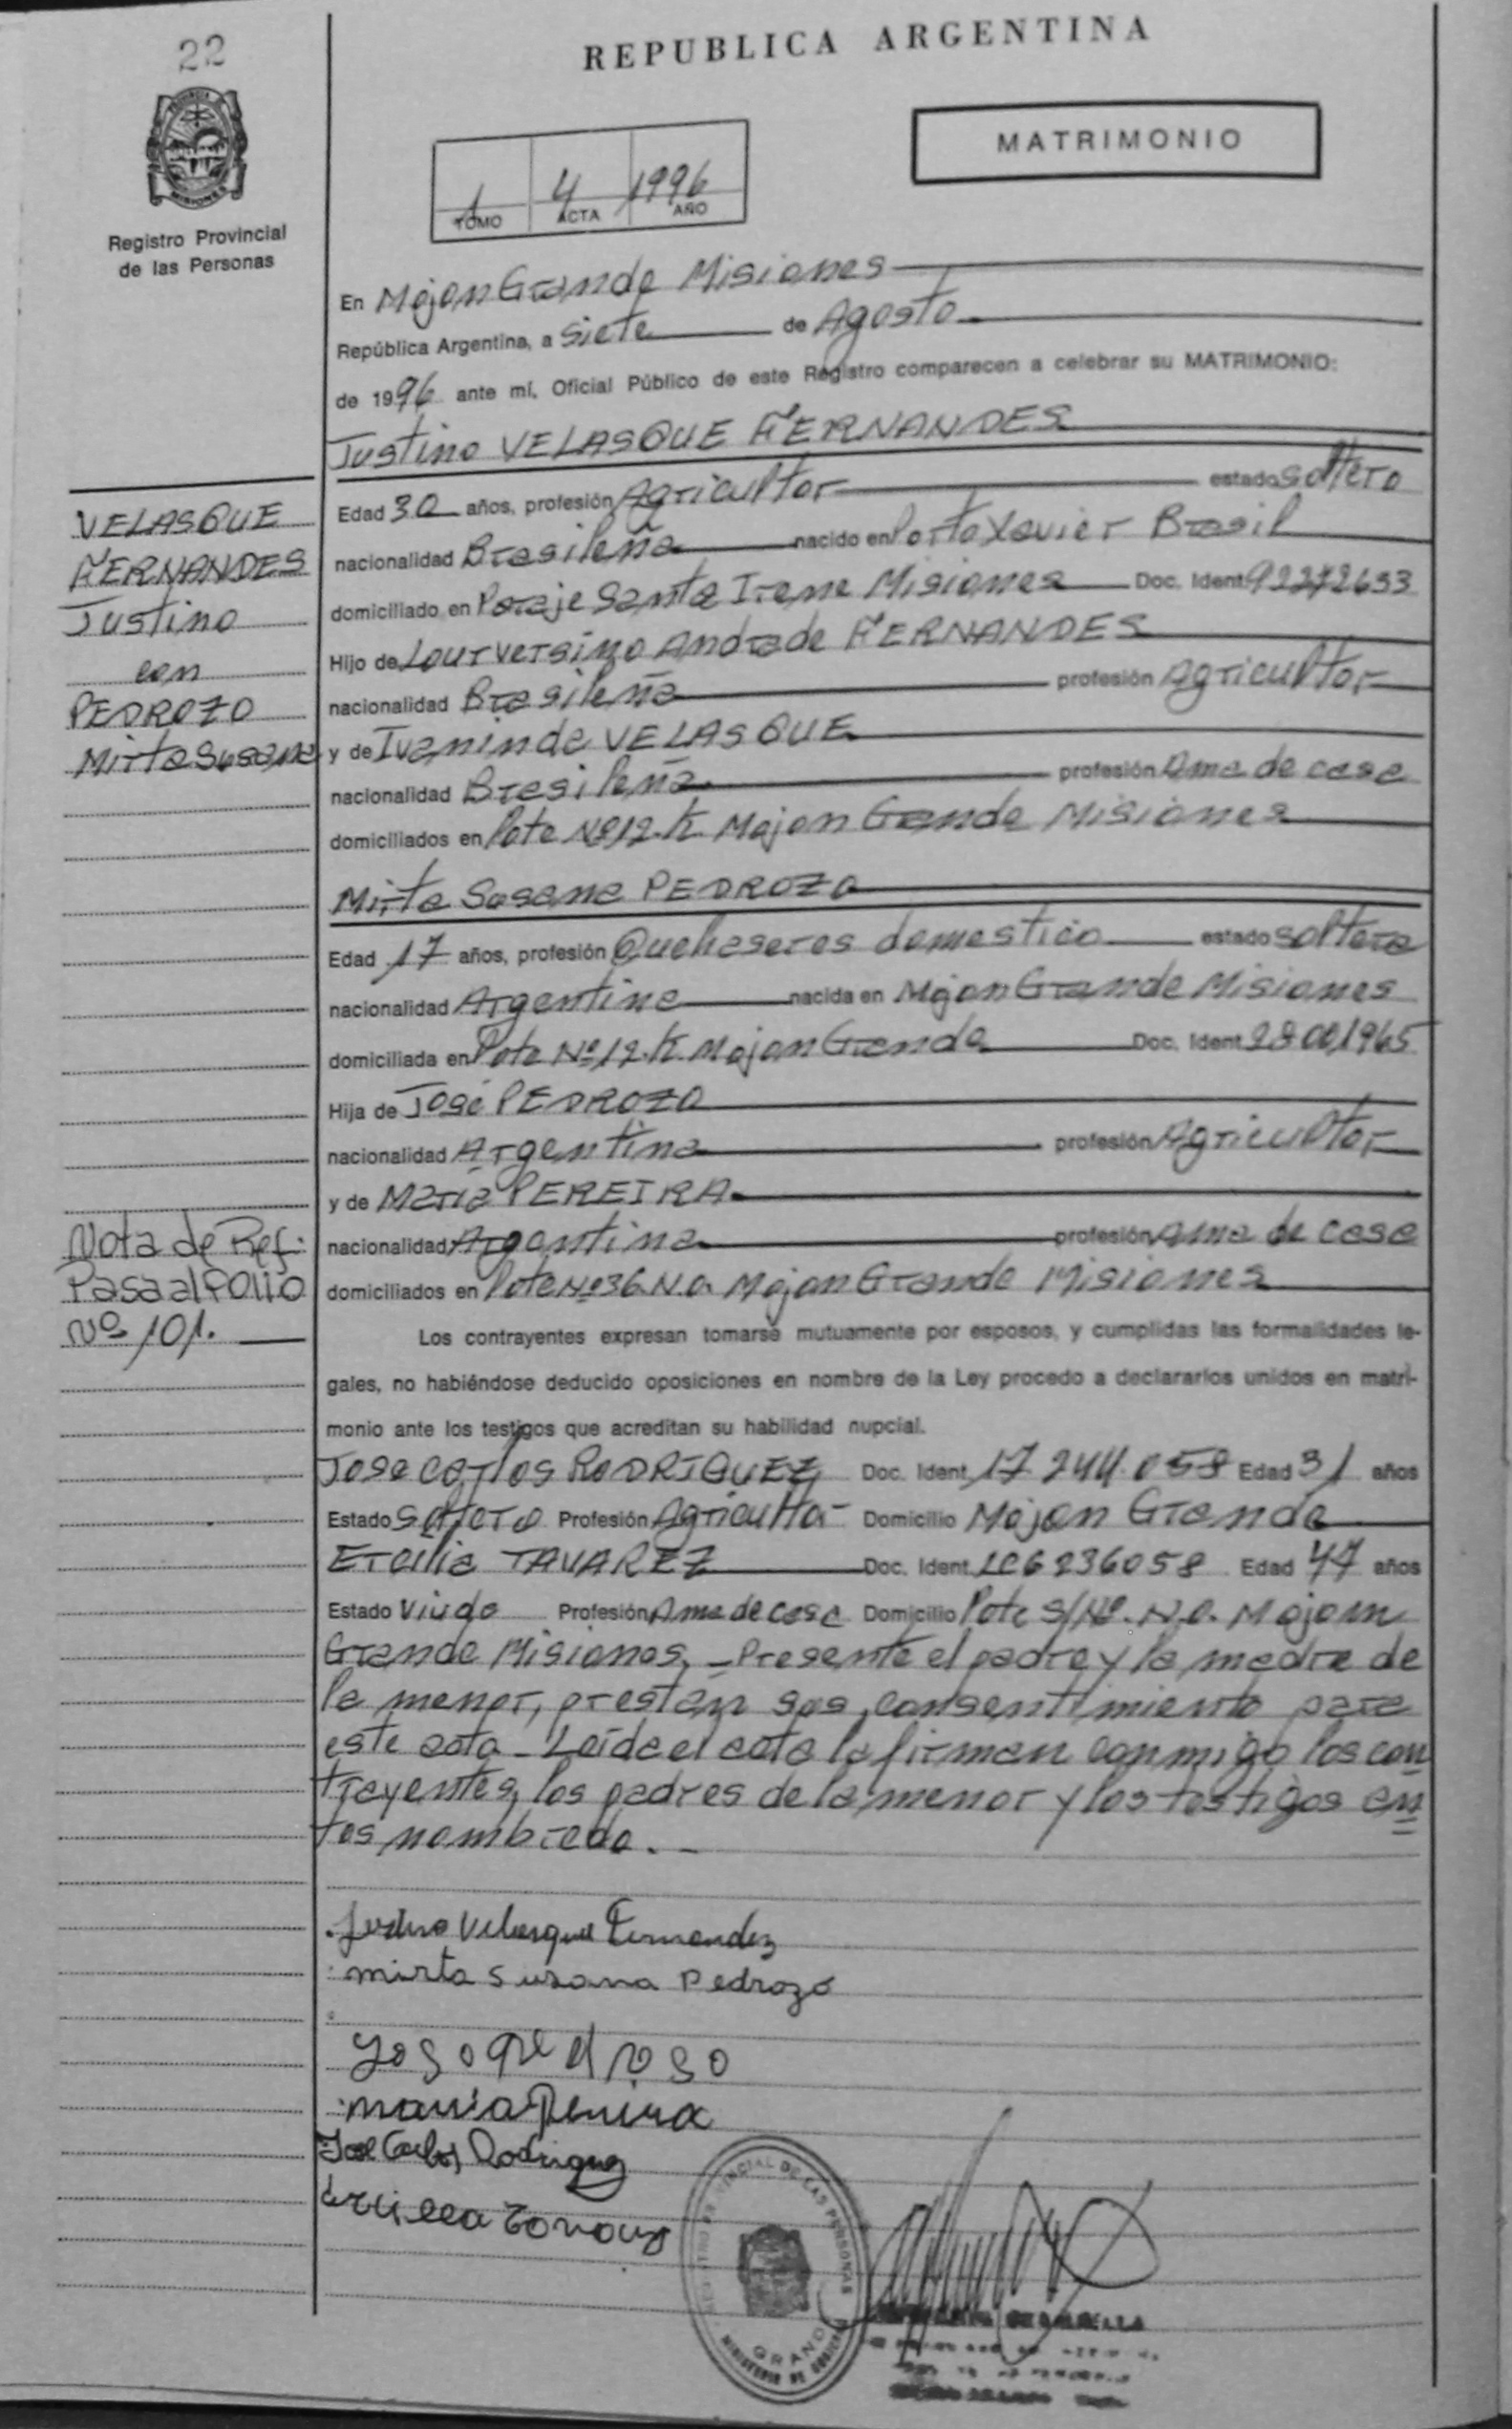 22
REPUBLICA ARGENTINA
MATRIMONIO
1 4 1996
TOMO ACTA AÑO
Registro Provincial
de las Personas
En Mojon Grande Misiones
República Argentina, a Siete de Agosto
de 1996 ante mí, Oficial Público de este Registro comparecen a celebrar su MATRIMONIO:
Justino VELASQUE FERNANDES
Edad 30 años, profesión Agricultor estado soltero
nacionalidad Brasileña nacido en Porto Xavier Brasil
domiciliado en Paraje Santa Irene Misiones Doc. Ident. 92272633
Hijo de Lourversino Andrade FERNANDES
nacionalidad Brasileña profesión Agricultor
y de Ivaninda VELASQUE
nacionalidad Brasileña profesión Ama de casa
domiciliados en Lote Nº12.K Mojon Grande Misiones
Mirta Susana PEDROZO
Edad 17 años, profesión Quehaseres domestico estado soltera
nacionalidad Argentina nacida en Mojon Grande Misiones
domiciliada en Lote Nº12.K Mojon Grande Doc. Ident 28001965
Hija de José PEDROZO
nacionalidad Argentina profesión Agricultor
y de Maria PEREIRA
nacionalidad Argentina profesión Ama de casa
domiciliados en Lote Nº36 N.a. Mojon Grande Misiones
Los contrayentes expresan tomarse mutuamente por esposos, y cumplidas las formalidades le-
gales, no habiéndose deducido oposiciones en nombre de la Ley procedo a declararlos unidos en matri-
monio ante los testigos que acreditan su habilidad nupcial.
Jose Carlos RODRIGUEZ Doc. Ident. 17.244.058 Edad 31 años
Estado soltero Profesión Agricultor Domicilio Mojon Grande
Ercilia TAVAREZ Doc. Ident. LC6236058 Edad 47 años
Estado Viuda Profesión Ama de casa Domicilio Lote S/Nº. N.a. Mojon
Grande Misiones, - Presente el padre y la madre de
la menor, prestan sus consentimiento para
este acto - Leída el acta la firman conmigo los con
trayentes, los padres de la menor y los testigos an
tes nombrado.-
VELASQUE
FERNANDES
Justino
con
PEDROZO
Mirta Susana
Nota de Ref:
Pasa al folio
Nº 101.
Justino Velasque Fernandez
mirta Susana Pedrozo
José Pedroso
maria Pereira
José Carlos Rodriguez
REGISTRO PROVINCIAL DE LAS PERSONAS
GRANDE
MINISTERIO DE GOBIERNO